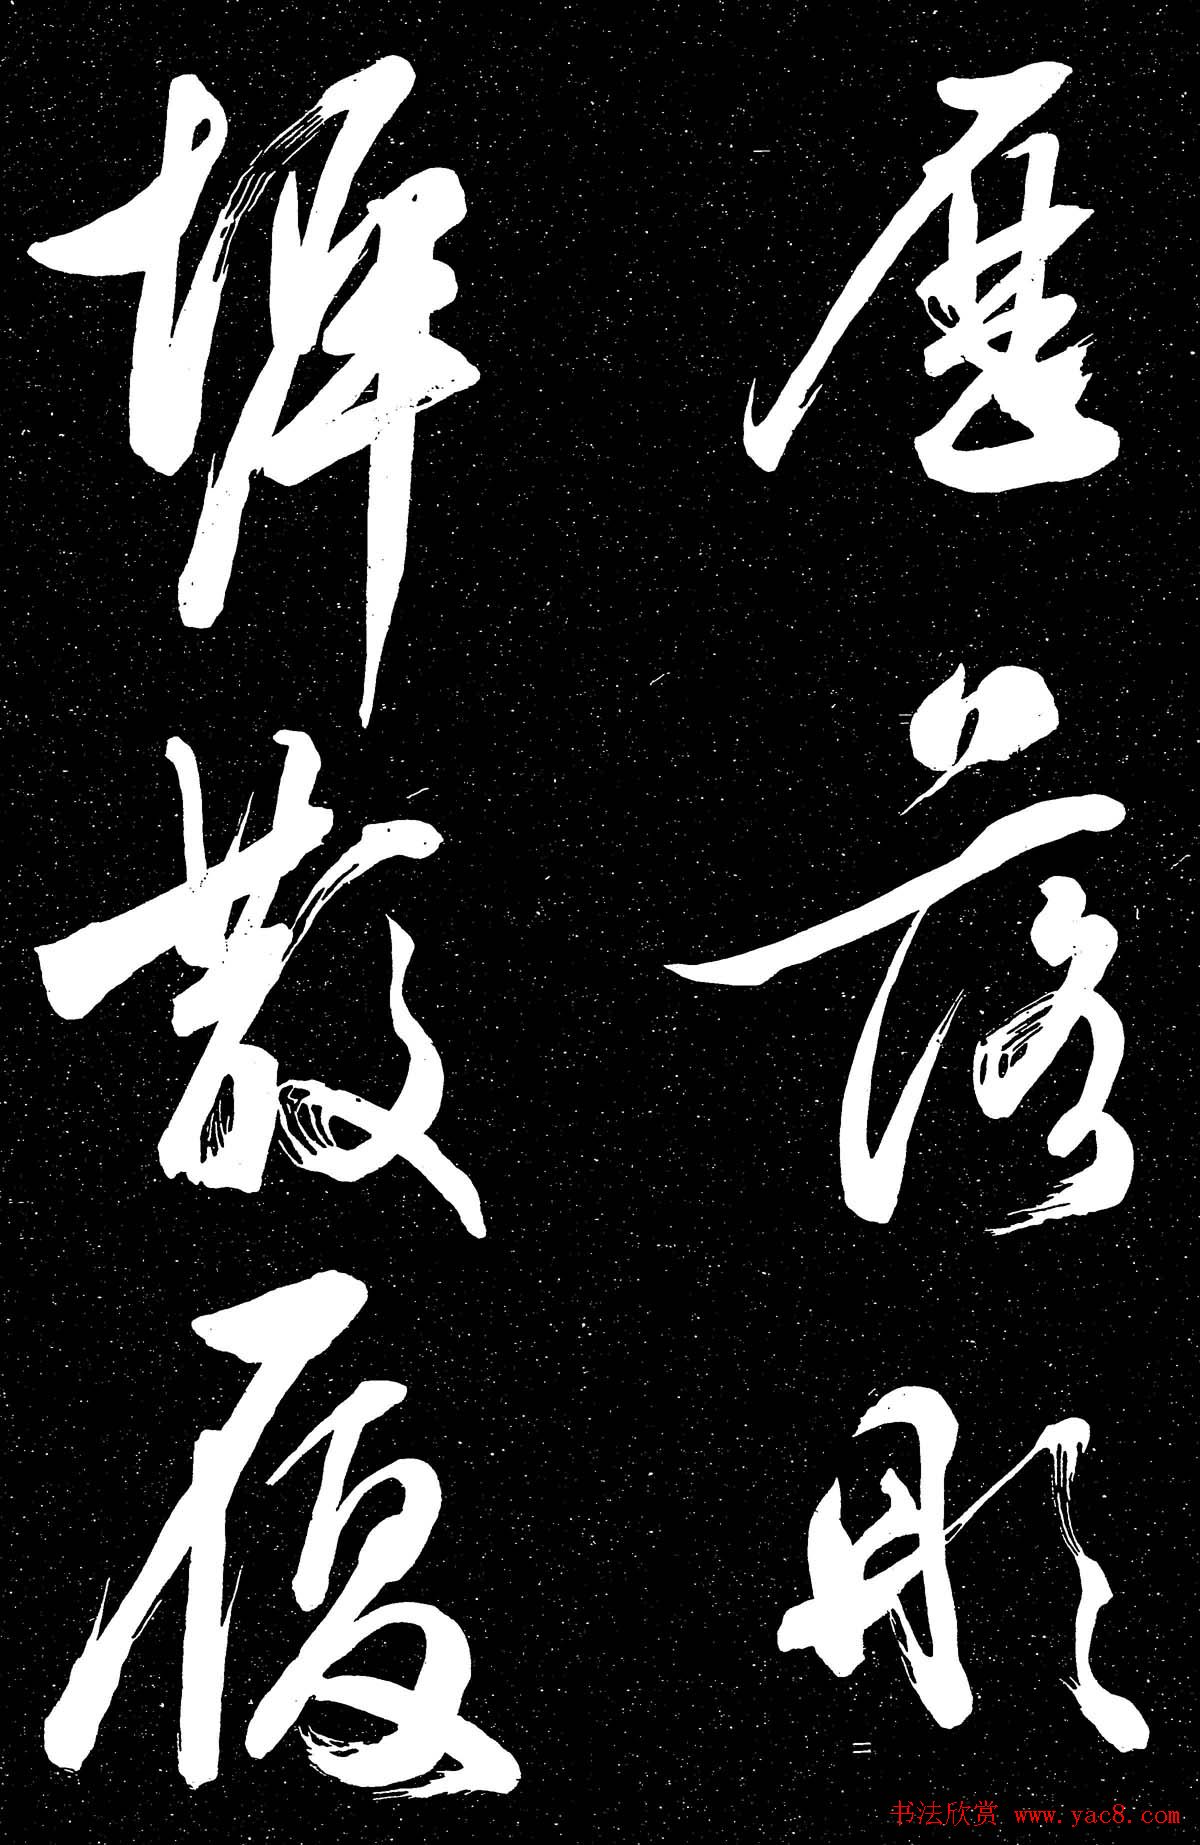 歷落彤
墀散履
书法欣赏 www.yac8.com